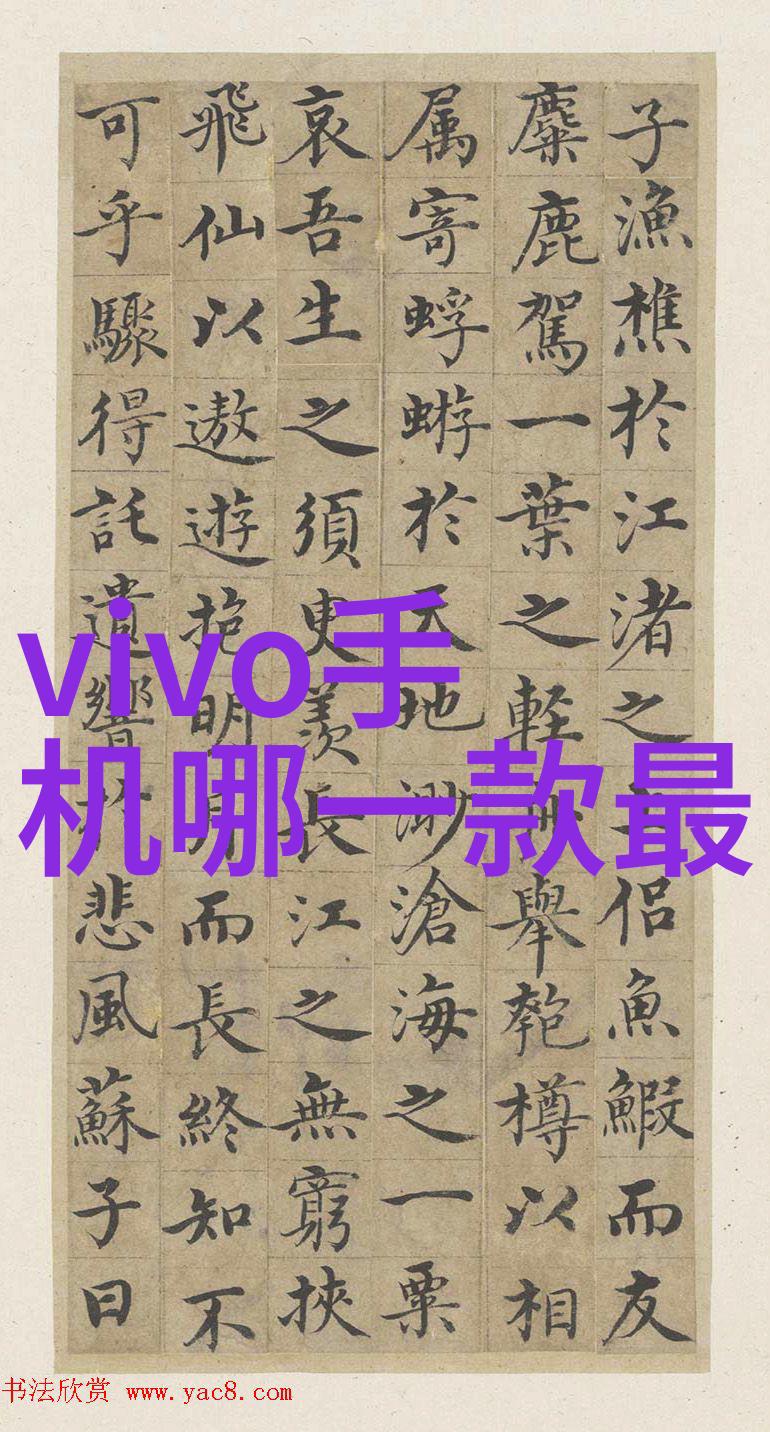 子漁樵於江渚之侶魚鰕而友
麋鹿駕一葉之輕舟舉匏樽以相
属寄蜉蝣於天地渺滄海之一粟
哀吾生之須臾羨長江之無窮挾
飛仙以遨遊抱明月而長終知不
可乎驟得託遺響於悲風蘇子曰
vivo手
机哪一款最
书法欣赏 www.yac8.com